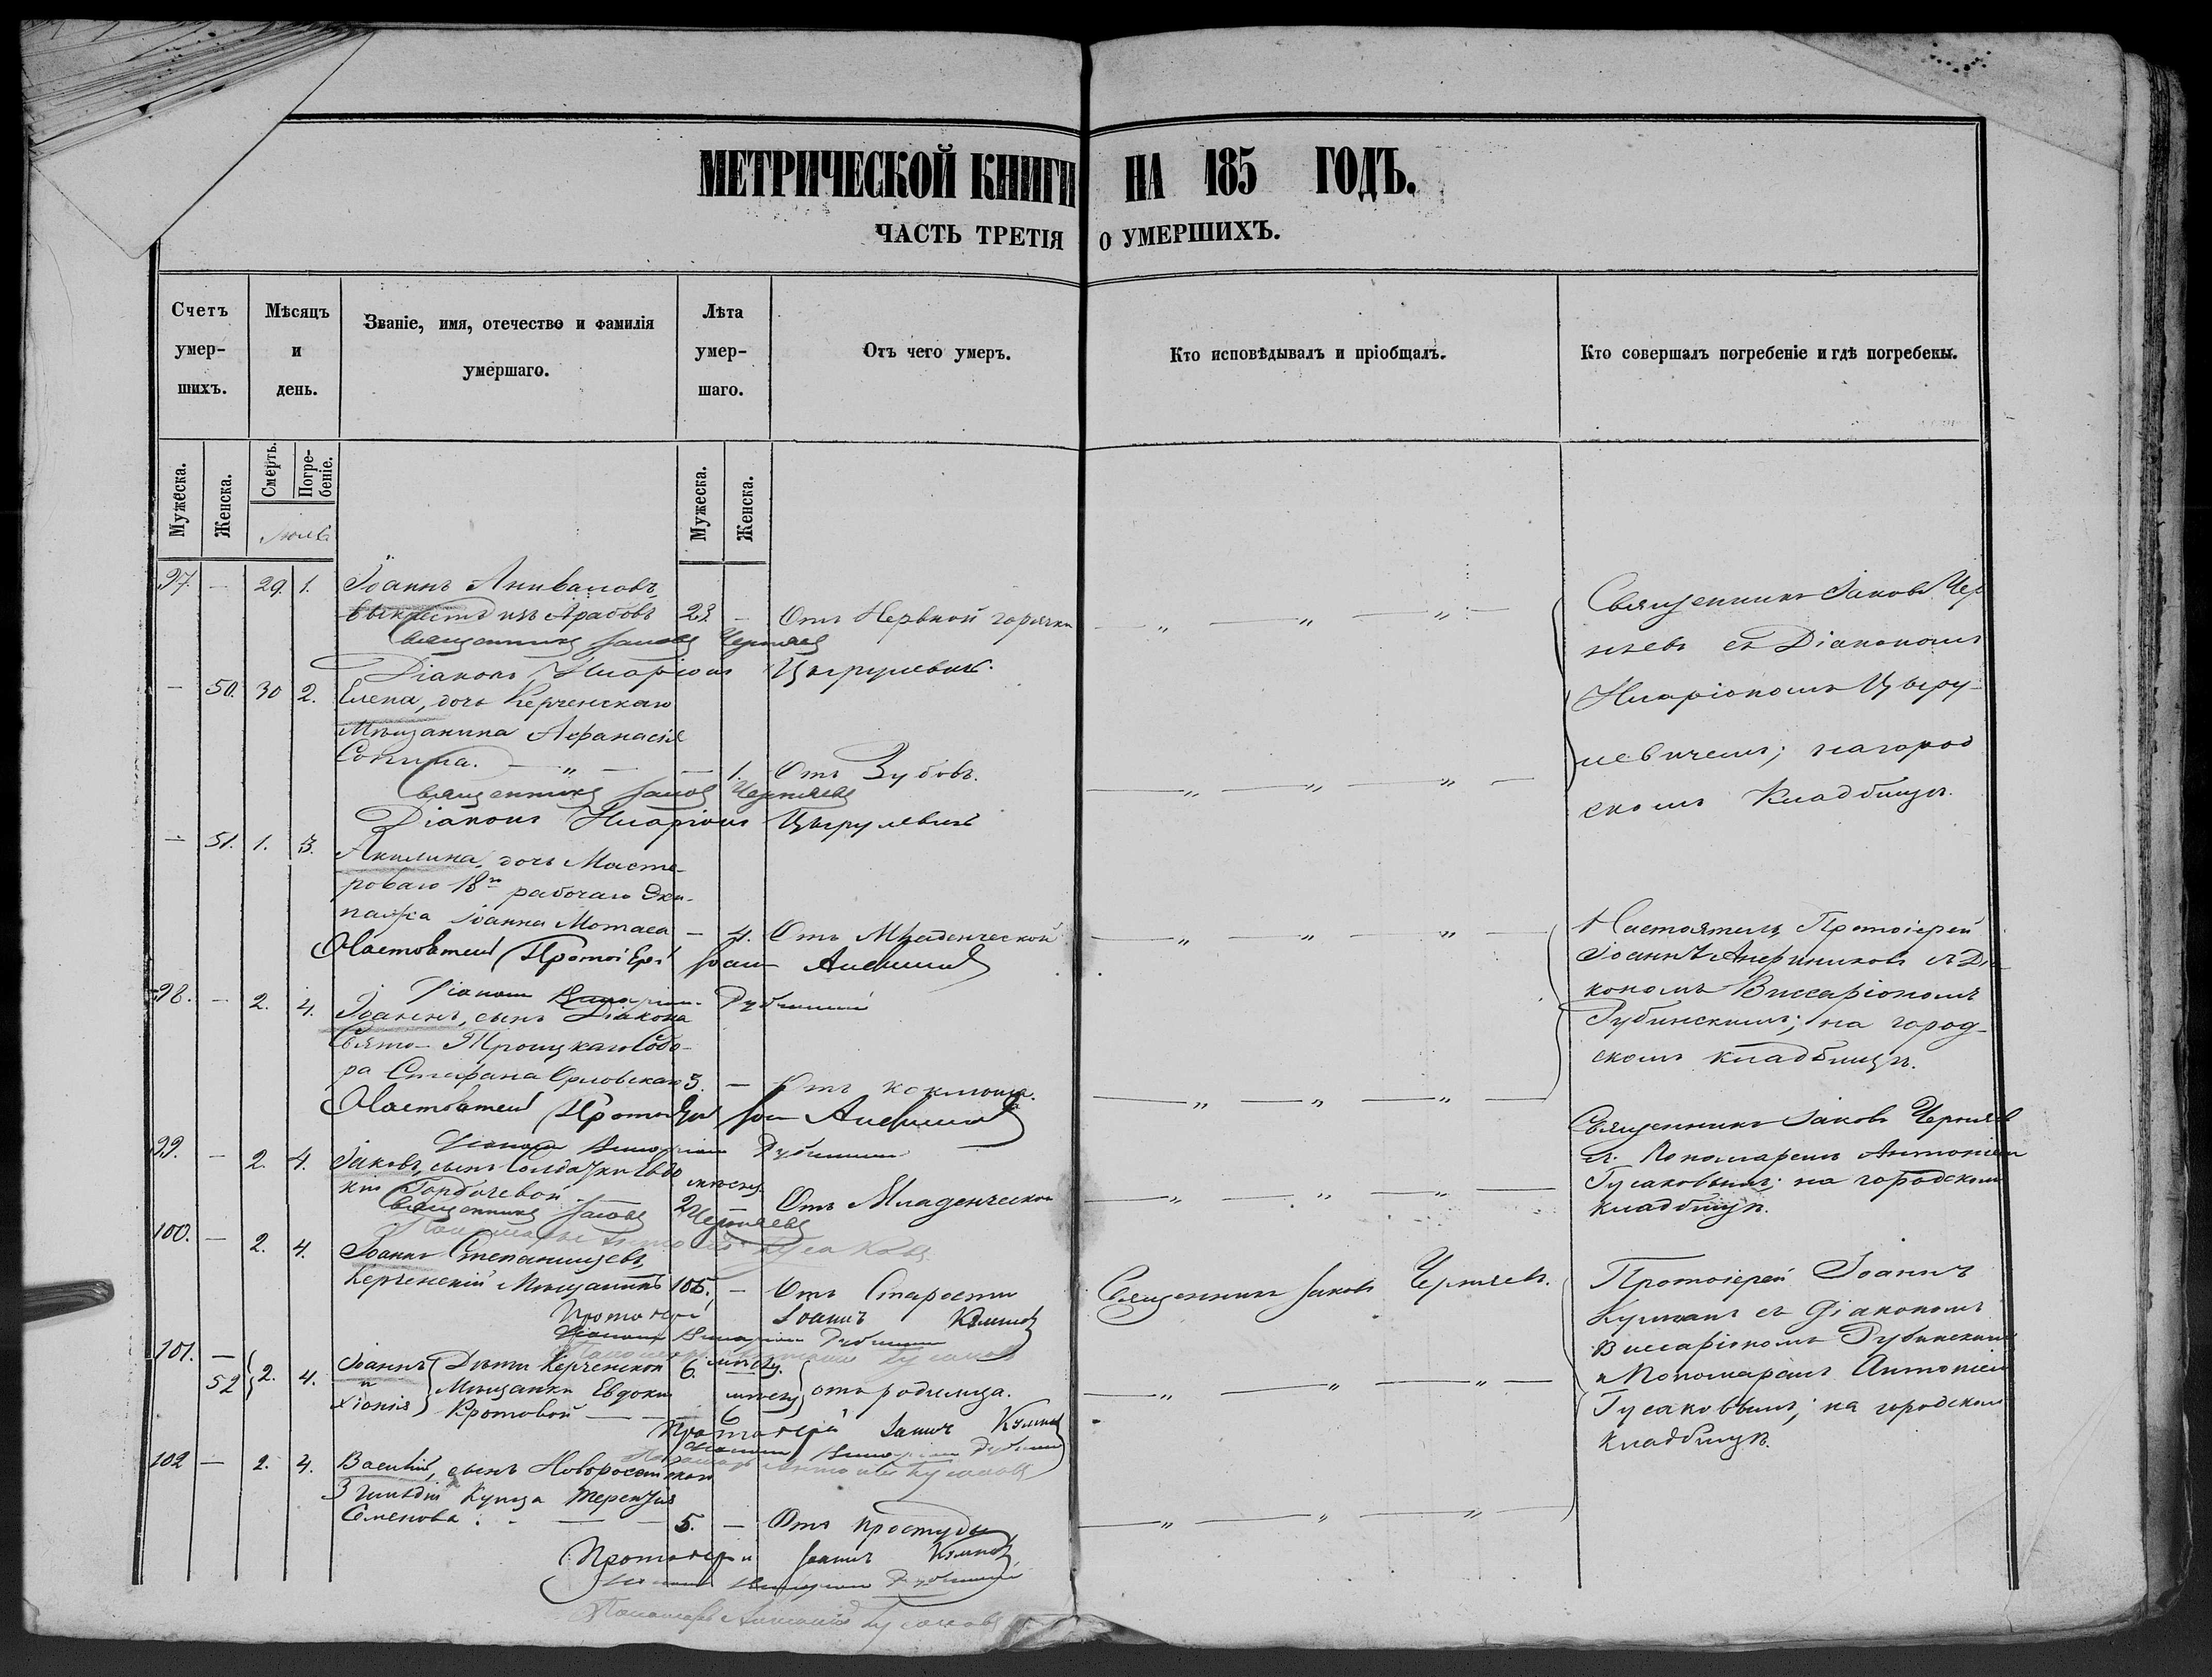 МЕТРИЧЕСКОЙ КНИГИ НА 185 ГОДЪ.
ЧАСТЬ ТРЕТІЯ О УМЕРШИХЪ.
Счетъ умер-шихъ.
Мѣсяцъ и день.
Званіе, имя, отечество и фамилія умершаго.
Лѣта умер-шаго.
Отъ чего умеръ.
Кто исповѣдывалъ и пріобщалъ.
Кто совершалъ погребеніе и гдѣ погребены.
Мужеска.
Женска.
Смерть.
Погре-беніе.
Мужеска.
Женска.
97. — 29. 1. Іоаннъ
изъ Арабовъ 23 — Отъ Нервной горячки
Священникъ Іаковъ Черняевъ
Діаконъ Иларіонъ Цыгрулевичъ.
Священникъ Іаковъ Чер
няевъ съ Діакономъ
Иларіономъ Цыгру-
левичемъ; на город
скомъ Кладбищѣ.
— 50. 30 2. Елена, дочь Керченскаго
Мѣщанина Афанасія
— 1. Отъ Зубовъ.
Священникъ Іаковъ Черняевъ
Діаконъ Иларіонъ Цыгрулевичъ
— 51. 1. 3. Акилина, дочь Масте-
роваго 18го рабочаго Эки-
пажа Іоанна Мотаса — 4. Отъ Младенческой
Настоятель Протоіерей Іоаннъ
Діаконъ Виссаріонъ Рубинскій
Настоятель Протоіерей
Іоаннъ съ Діа
кономъ Виссаріономъ
Рубинскимъ; на город-
скомъ кладбищѣ.
98. — 2. 4. Іоаннъ, сынъ Діакона
Свято-Троицкаго Собо-
ра Стефана Орловскаго 3. — Отъ коклюша.
Настоятель Протоіерей
Діаконъ Виссаріонъ Рубинскій
99. — 2. 4. Іаковъ, сынъ Солдатки Евдо
кіи Горбачевой 2 мѣсяц. Отъ Младенческой
Священникъ Іаковъ Черняевъ
Пономарь Антоній Гусаковъ
Священникъ Іаковъ Черняевъ
съ Пономаремъ Антоніемъ
Гусаковымъ; на городскомъ
кладбищѣ.
100. — 2. 4. Іоаннъ Степанищевъ,
Керченскій Мѣщанинъ 105. — Отъ Старости
Священникъ Іаковъ Черняевъ.
Протоіерей Іоаннъ
Діаконъ Виссаріонъ Рубинскій
Пономарь Антоній Гусаковъ
Протоіерей Іоаннъ
съ Діакономъ
Виссаріономъ Рубинскимъ
и Пономаремъ Антоніемъ
Гусаковымъ; на городскомъ
Кладбищѣ.
101. — 52 2. 4. Іоаннъ и Хіонія Дѣти Керченской
Мѣщанки Евдокіи
Кротовой 6. мѣсяц. 6 мѣсяц отъ родимца.
Протоіерей Іоаннъ
Діаконъ Виссаріонъ Рубинскій
Пономарь Антоній Гусаковъ
102 — 2. 4. Василій, сынъ Новоросс
3 гильдіи Купца Терентія
Семенова. — 5. — Отъ простуды
Протоіерей Іоаннъ
Діаконъ Виссаріонъ Рубинскій
Пономарь Антоній Гусаковъ